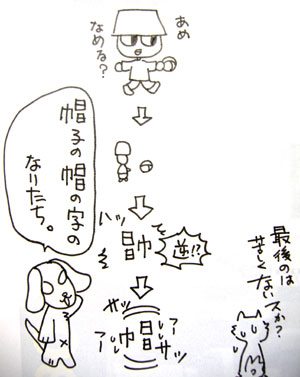 あめ
なめる？
帽子の帽の字の
なりたち。
ハッ
冒巾
逆!?
サッ
帽
サッ
最後のは
苦しくないスか？